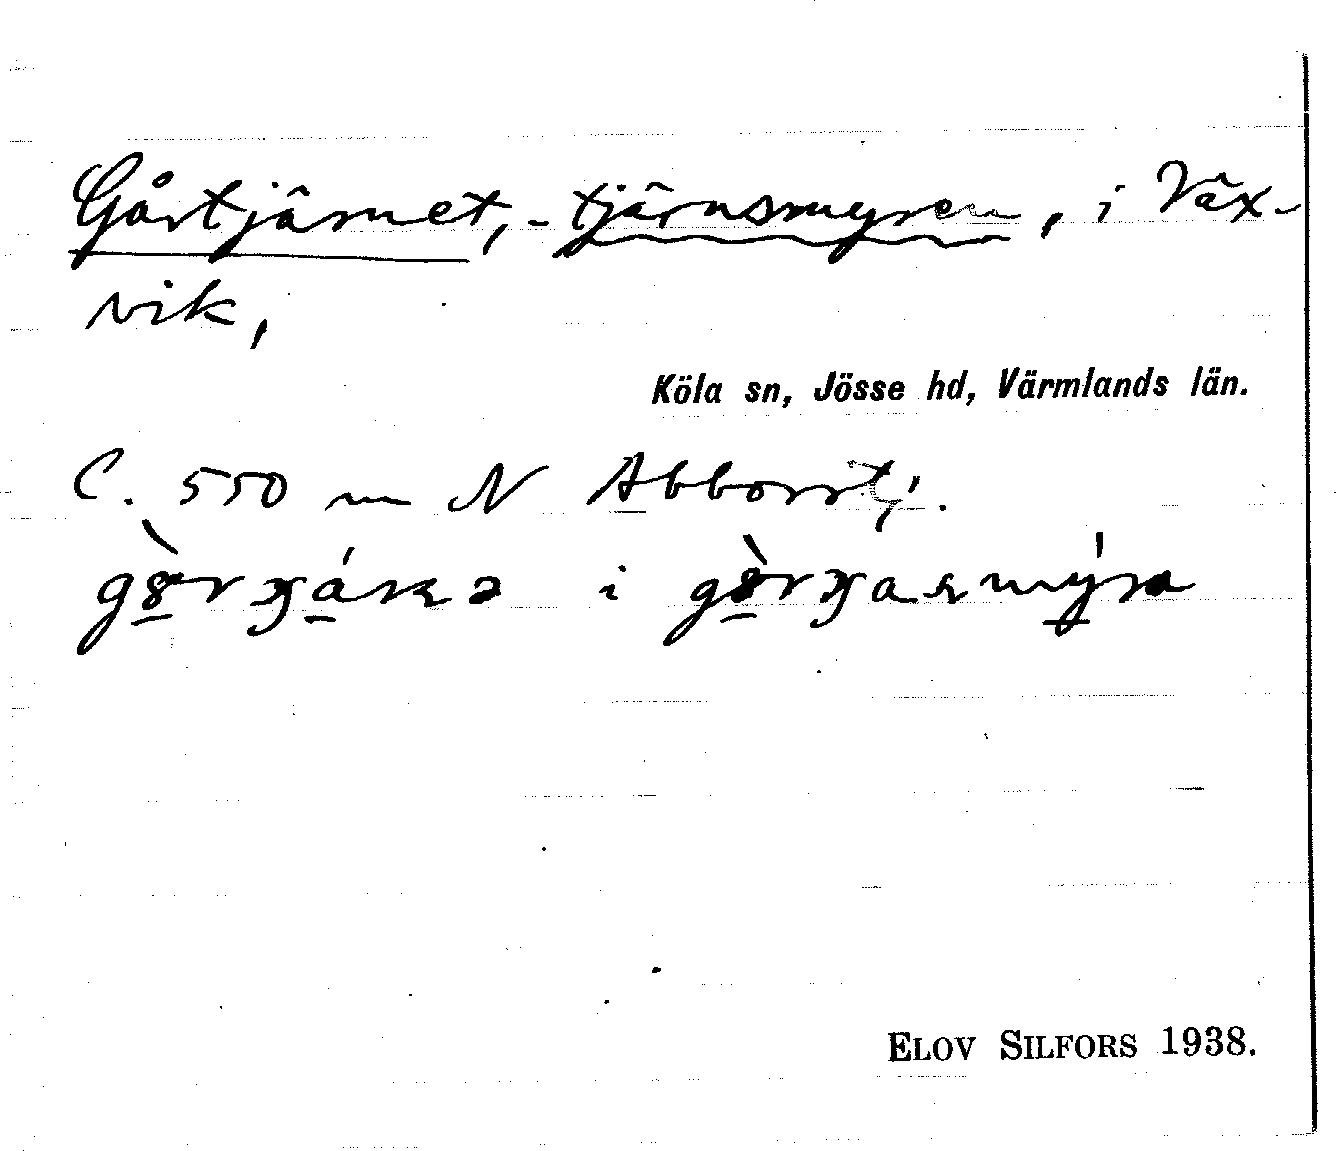 Gårtjärnet, -tjärnsmyren, i Väx-
vik,
Köla sn, Jösse hd, Värmlands län.
C. 550 m N Abborrtj.
i
ELOV SILFORS 1938.